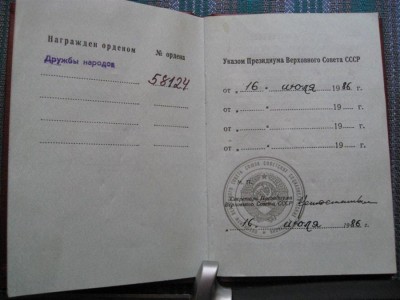 Награжден орденом № ордена
Дружбы народов 58124
Указом Президиума Верховного Совета СССР
от „ 16 “ июля 1986 г.
от „ “ 19 г.
от „ “ 19 г.
от „ “ 19 г.
М. П.
Секретарь Президиума
Верховного Совета СССР
„ 16 “ июля 1986 г.